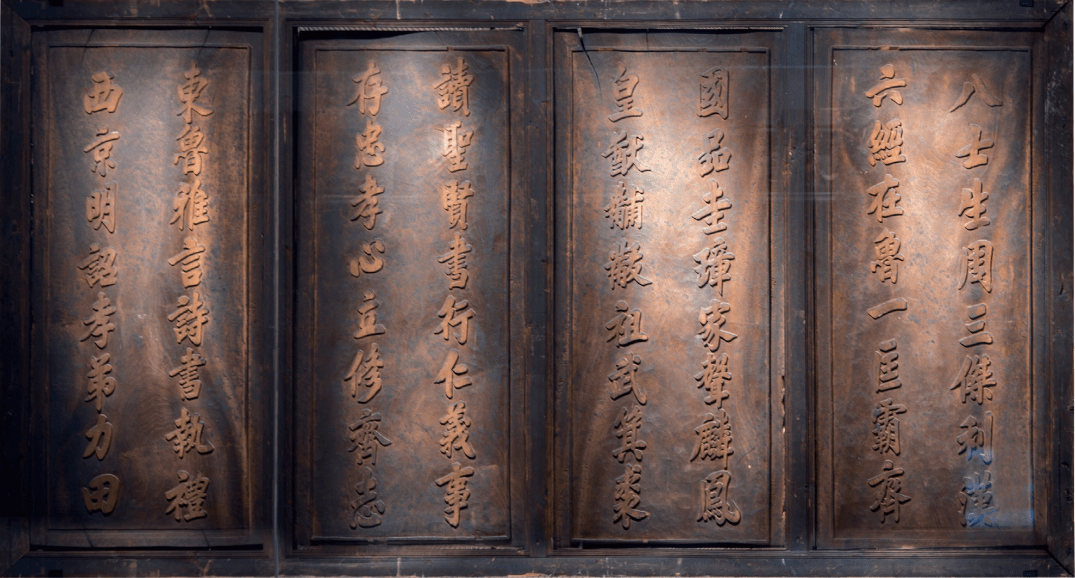 八士生周三傑利漢
六經在魯一匡霸齊
國品圭璋家聲麟鳳
皇猷黼黻祖武箕裘
讀聖賢書行仁義事
存忠孝心立修齊志
東魯雅言詩書執禮
西京明詔孝弟力田